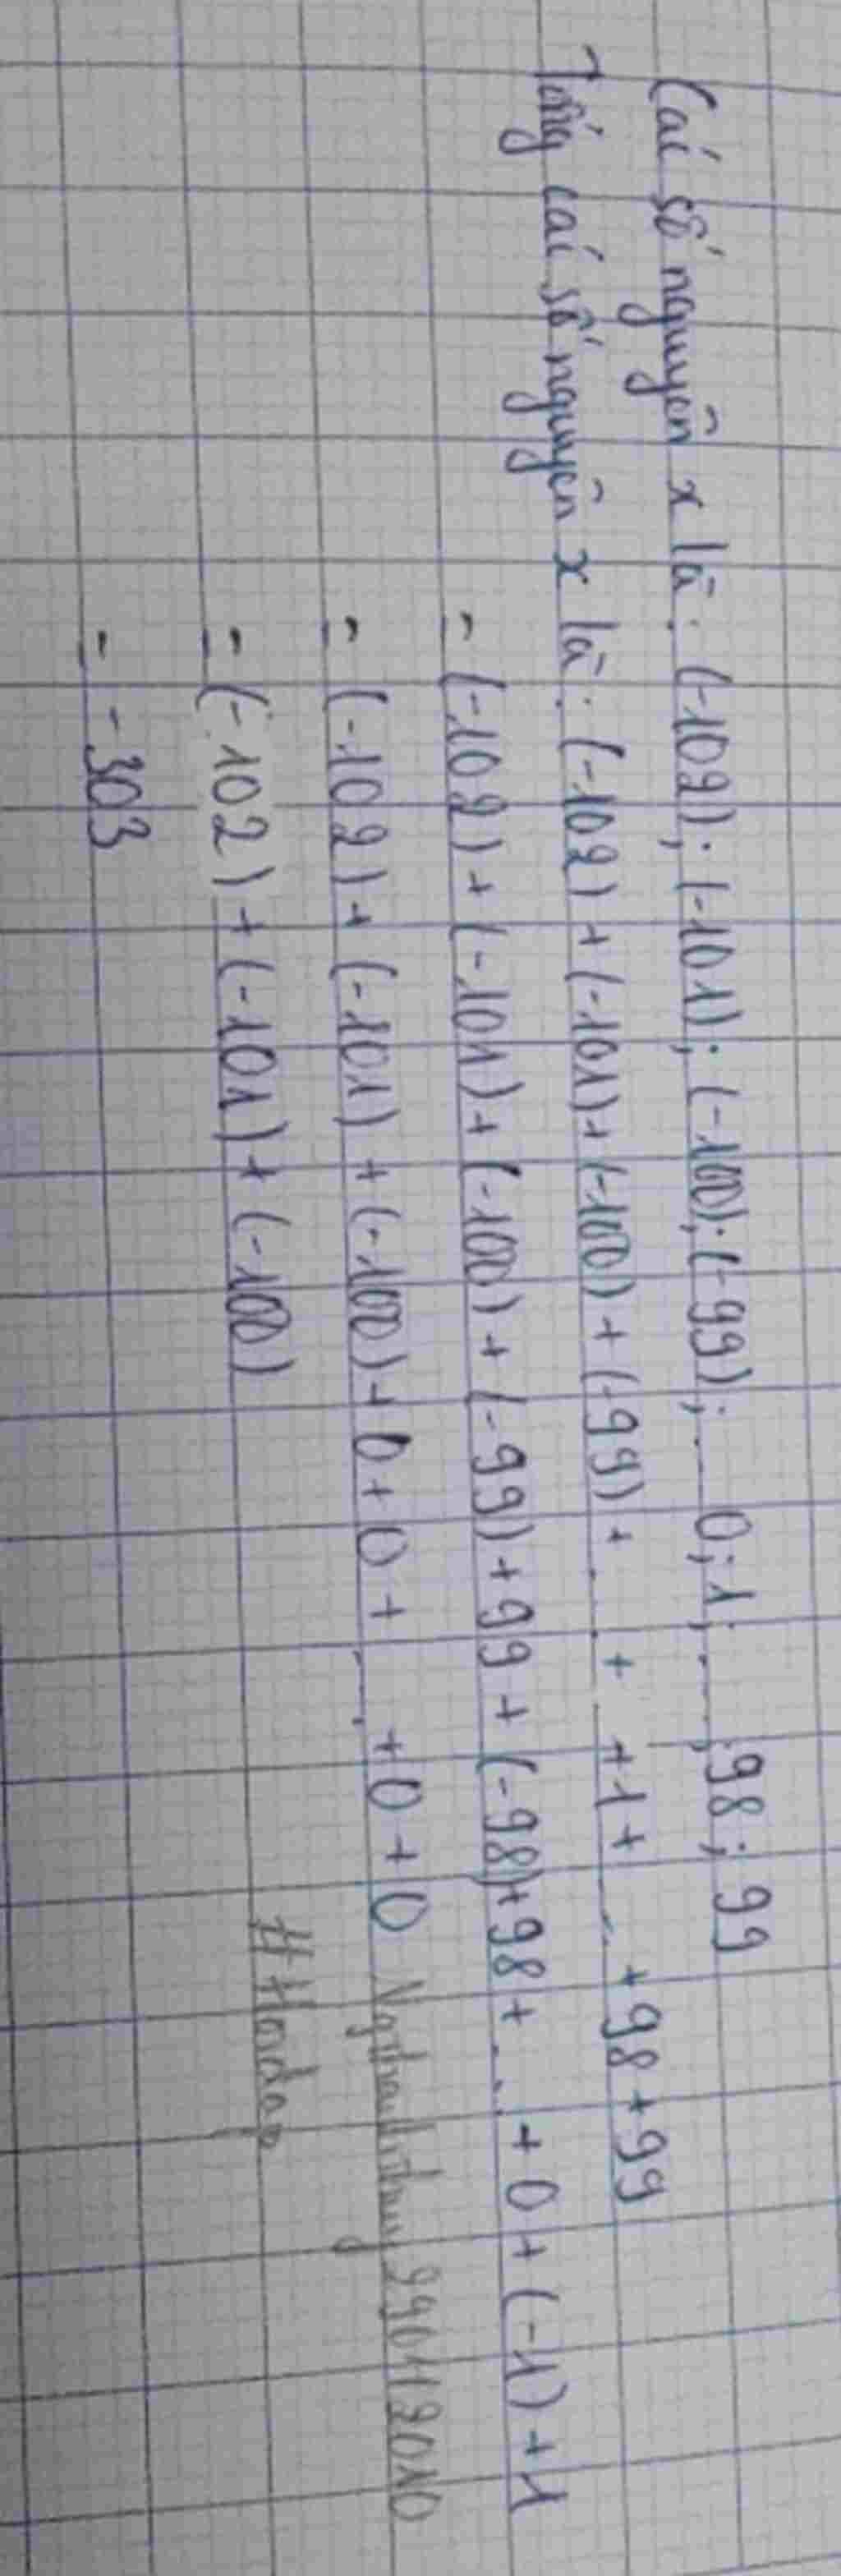 Cái số nguyên x là: (-102); (-101); (-100); (-99); ... 0; 1; ...; 98; 99
Tổng cái số nguyên x là: (-102) + (-101) + (-100) + (-99) + ... + +1 + ... + 98 + 99
= (-102) + (-101) + (-100) + (-99) + 99 + (-98) + 98 + ... + 0 + (-1) + 1
= (-102) + (-101) + (-100) + 0 + 0 + ... + 0 + 0
= (-102) + (-101) + (-100)
= -303